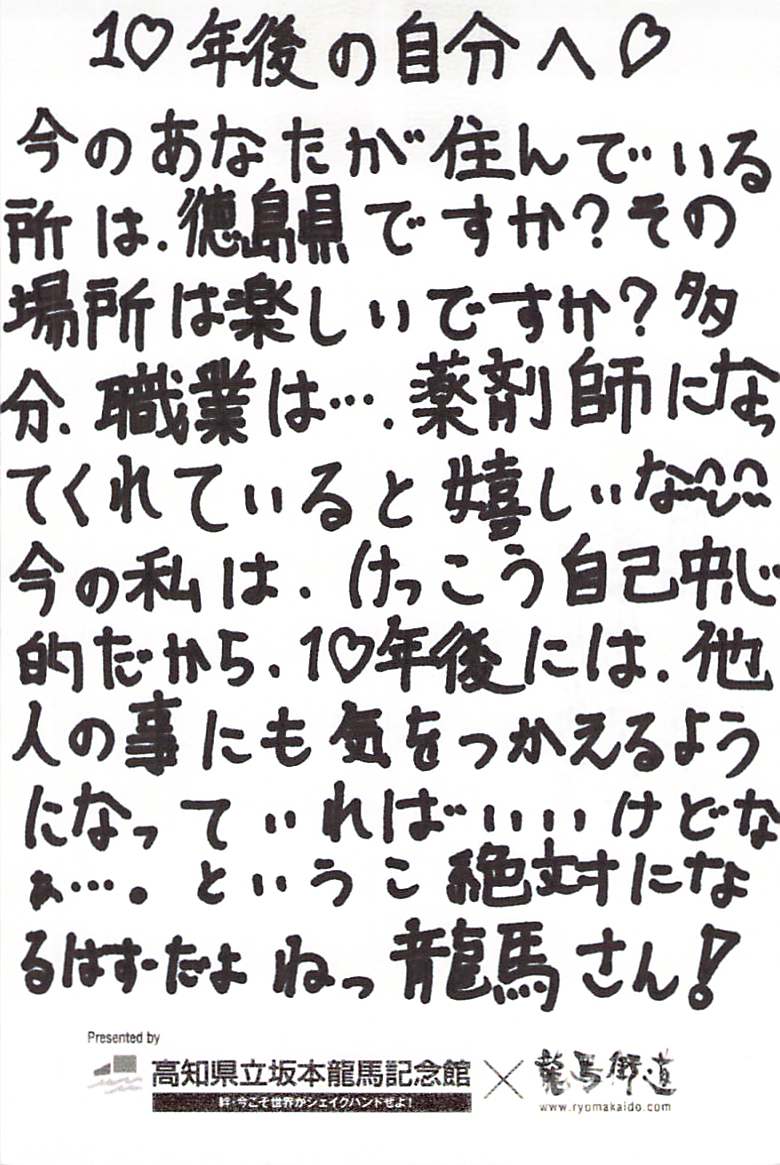 10年後の自分へ♡
今のあなたが住んでいる
所は、徳島県ですか?その
場所は楽しいですか?多
分、職業は…、薬剤師になっ
てくれていると嬉しいな
今の私は、けっこう自己中心
的だから、10年後には、他
人の事にも気をつかえるよう
になっていればいいけどな
ぁ…。というこ絶対にな
るはずだよねっ龍馬さん!
Presented by
高知県立坂本龍馬記念館×龍馬街道
絆・今こそ世界がシェイクハンドぜよ!
www.ryomakaido.com